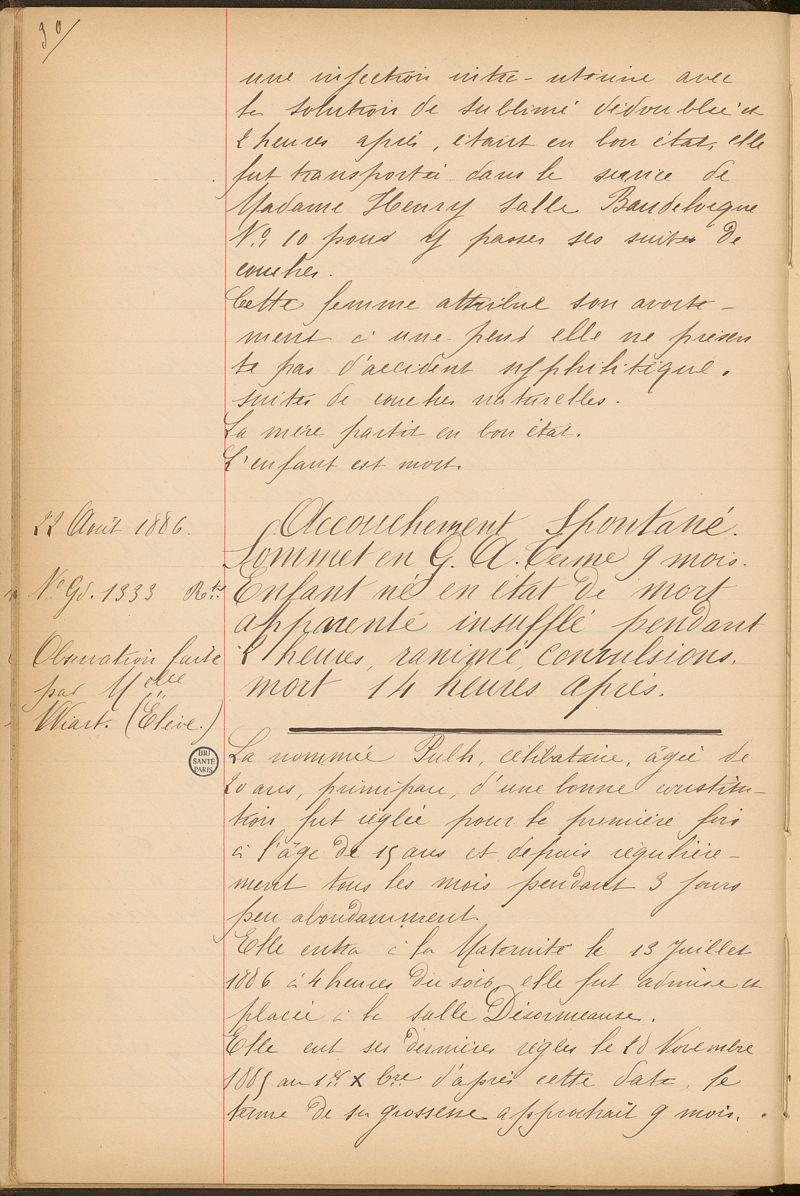 90/
une injection intra-utérine avec
la solution de sublimé dédoublée et
2 heures après, étant en bon état, elle
fut transportée dans le service de
Madame Henry salle Baudelocque
N.o 10 pour y passer ses suites de
couches.
Cette femme attribue son avorte-
ment à une peur elle ne présen
te pas d'accident syphilitique.
suites de couches naturelles.
La mère partit en bon état.
L'enfant est mort.
22 Août 1886.
Accouchement Spontané.
Sommet en G. A. Terme 9 mois.
No Gd. 1333 Enfant né en état de mort
apparente insufflé pendant
Observation faite
2 heures, ranimé, convulsions.
par Melle
mort 14 heures après.
Wiart. (Élève.)
BIU
SANTÉ
PARIS
La nommée Pulh, célibataire, âgée de
20 ans, primipare, d'une bonne constitu-
tion fut réglée pour la première fois
à l'âge de 15 ans et depuis régulière-
ment tous les mois pendant 3 jours
peu abondamment.
Elle entra à la Maternité le 13 Juillet
1886 à 4 heures du soir elle fut admise et
placée à la salle Désormeause.
Elle eut ses dernières règles le 28 Novembre
1885 au 1er X bre d'après cette date, le
terme de sa grossesse approchait 9 mois.